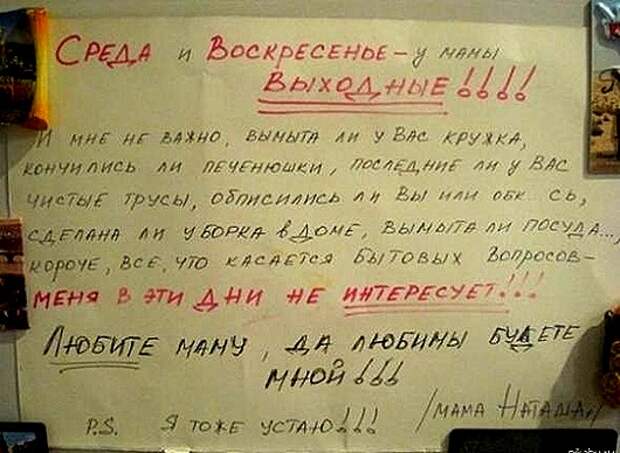 СРЕДА и ВОСКРЕСЕНЬЕ – У МАМЫ
ВЫХОДНЫЕ!!!!
И МНЕ НЕ ВАЖНО, ВЫМЫТА ЛИ У ВАС КРУЖКА,
КОНЧИЛИСЬ ЛИ ПЕЧЕНЮШКИ, ПОСЛЕДНИЕ ЛИ У ВАС
ЧИСТЫЕ ТРУСЫ, ОБПИСИЛИСЬ ЛИ ВЫ ИЛИ ОБК...СЬ,
СДЕЛАНА ЛИ УБОРКА В ДОМЕ, ВЫМЫТА ЛИ ПОСУДА...,
КОРОЧЕ, ВСЕ, ЧТО КАСАЕТСЯ БЫТОВЫХ ВОПРОСОВ –
МЕНЯ В ЭТИ ДНИ НЕ ИНТЕРЕСУЕТ!!!
ЛЮБИТЕ МАМУ, ДА ЛЮБИМЫ БУДЕТЕ
МНОЙ!!!
/МАМА НАТАША/
P.S. Я ТОЖЕ УСТАЮ!!!